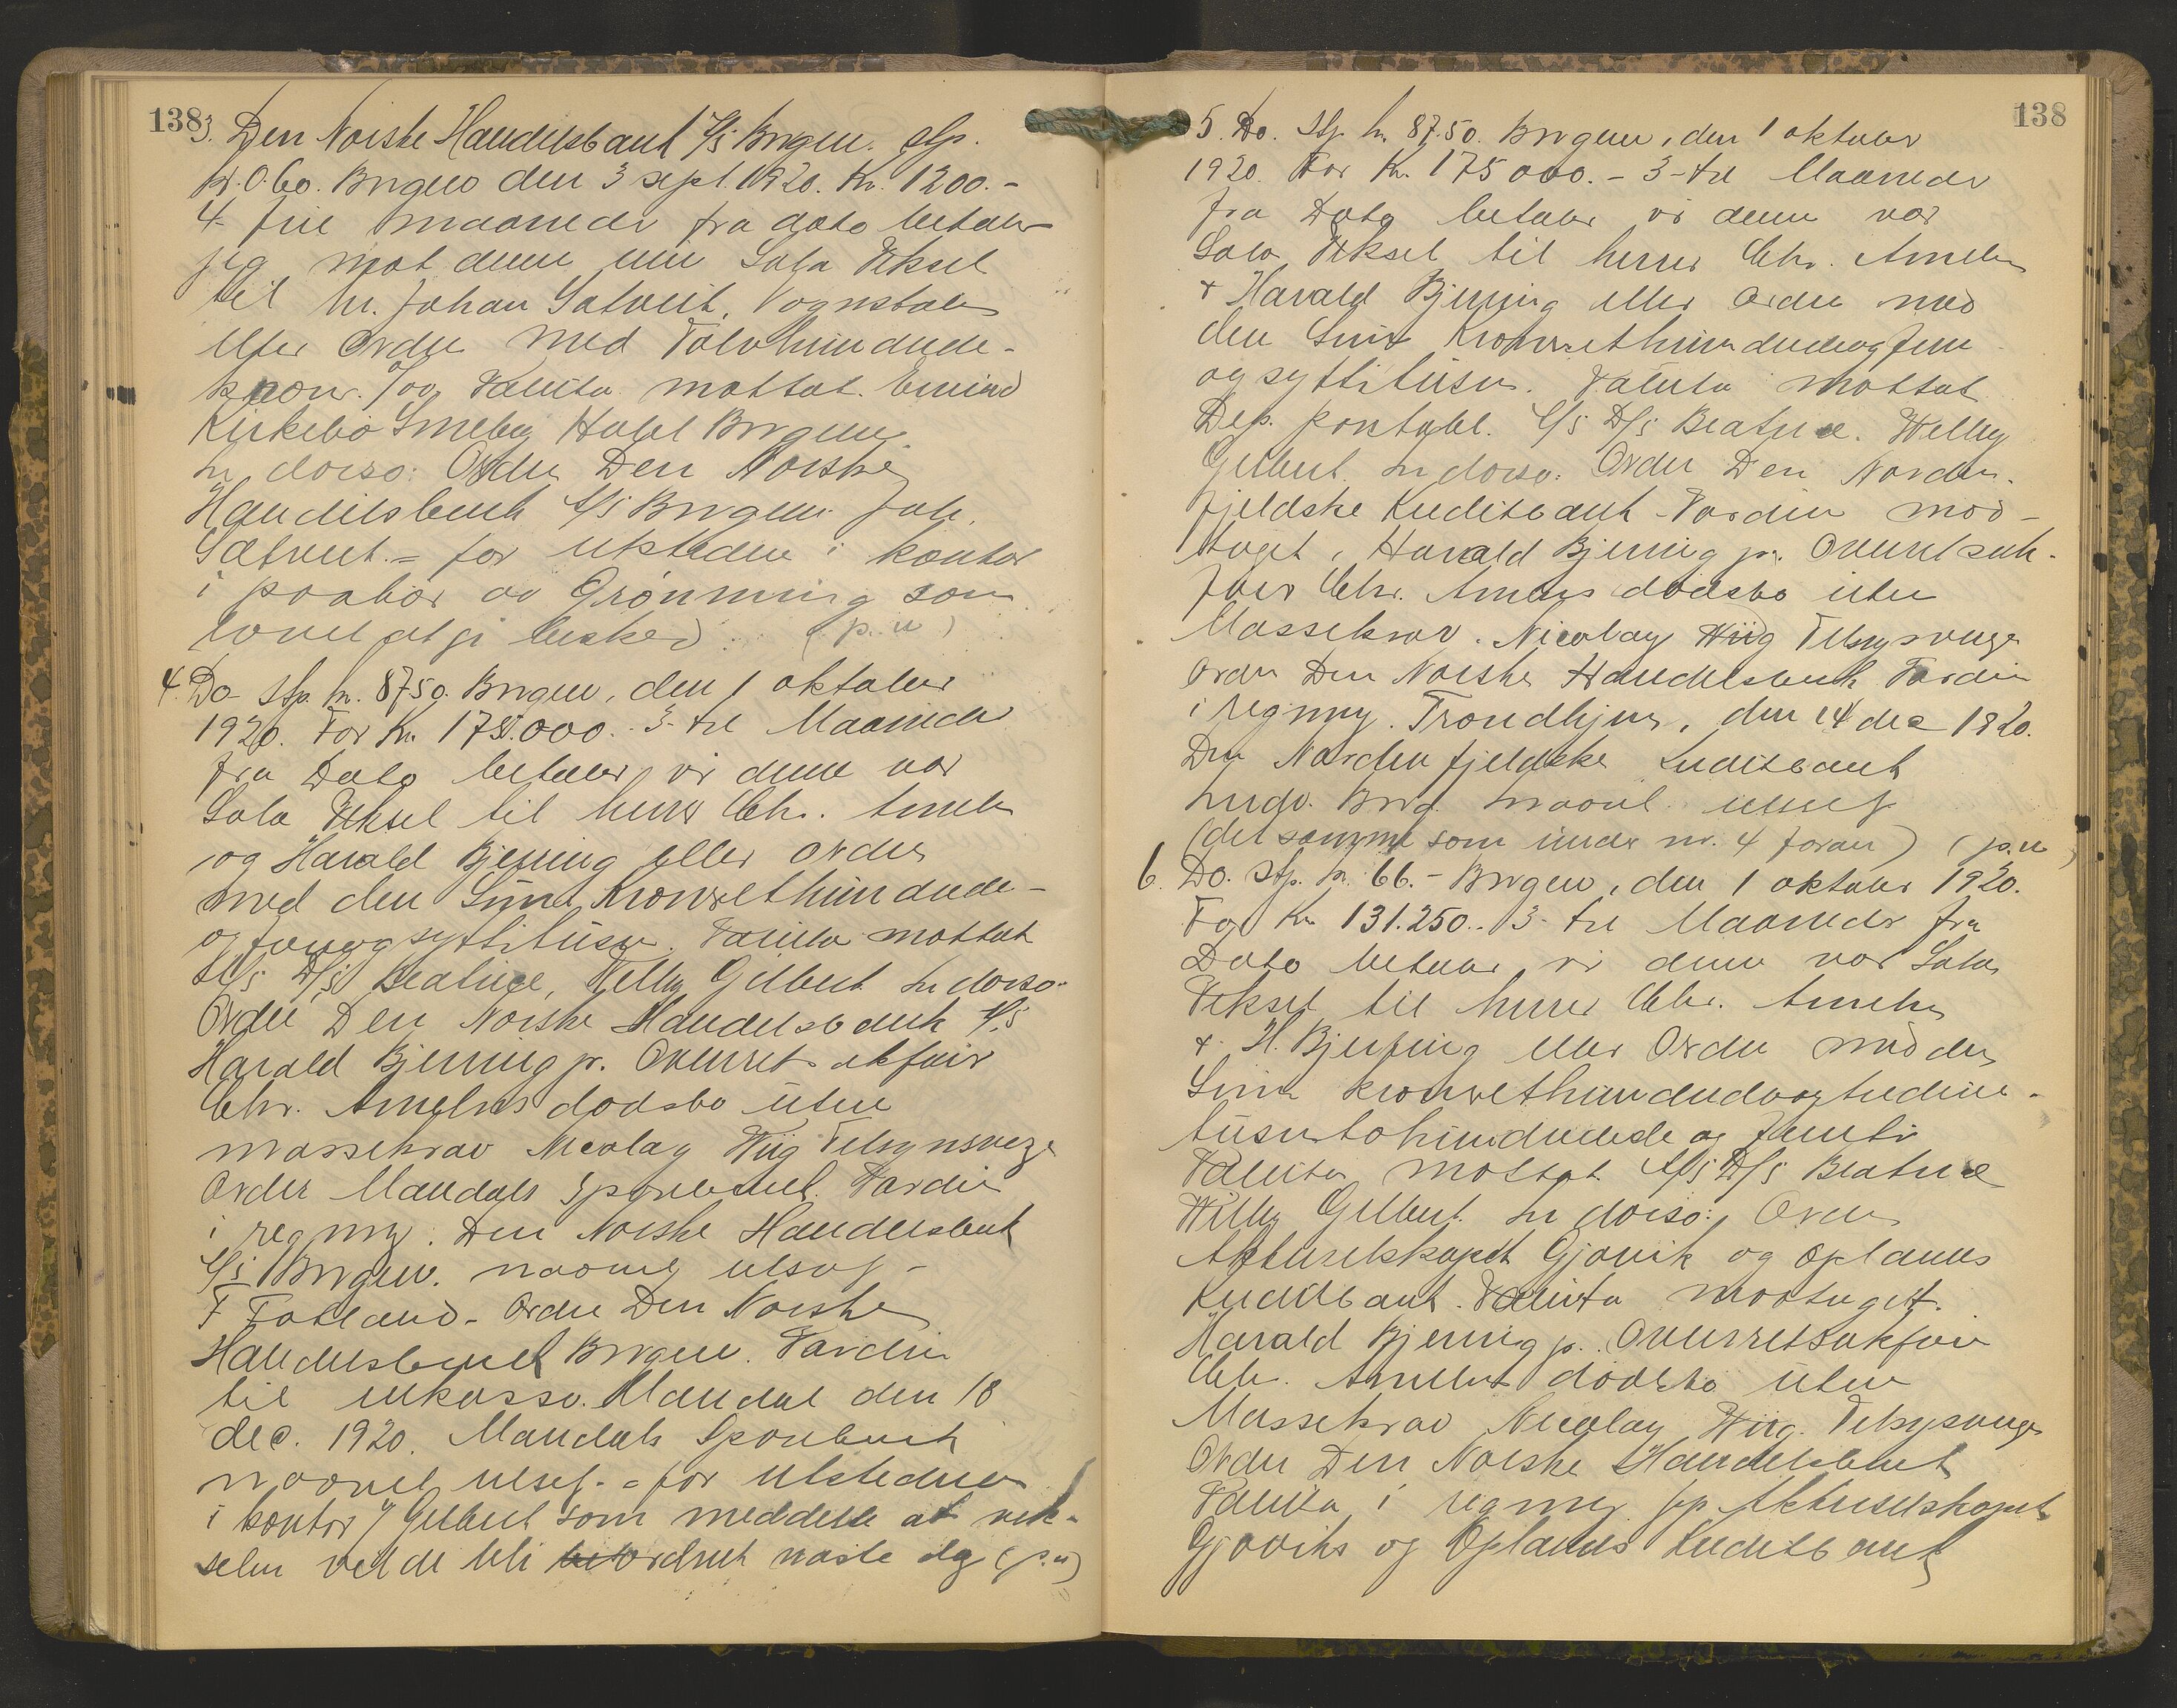 138
3. Den Norske Handelsbank A/s Bergen. stp.
kr. 0.60. Bergen den 3 sept. 1920. Kr. 1200.-
4- fire maaneder fra dato betaler
jeg mot denne min Sola Veksel
til hr. Johan Satveit, Vognstølen
eller Ordre med Tolvhundrede-
kroner. /00 Valuta mottat. Eivind
Kirkebø Smeby Hotel Bergen.
In dorso: Ordre Den Norske
Handelsbank A/s Bergen. Joh.
Satveit. - for utstederen i kontor
i paahør av Grønning som
lovet at gi besked. (p. u)
4. Do stp. kr. 87.50. Bergen, den 1 oktober
1920. For Kr. 175.000. 3- tre Maaneder
fra Dato betaler vi denne vor
Sola Veksel til herrer Chr. Ameln
og Harald Bjerring eller ordre
med den Sum Kroner ethundrede-
og femogsyttitusen. Valuta mottat
A/s D/s Beatrice, Willy Gilbert. In dorso:
Ordre Den Norske Handelsbank A/s
Harald Bjerring pr. Overretssakfører
Chr. Amelns dødsbo uten
massekrav Nicolay Wiig Tilsynsverge
Ordre Mandals Sparebank. Værdien
i regning. Den Norske Handelsbank
A/s Bergen. navnet ulæs. -
F Fotland - Ordre Den Norske
Handelsbank Bergen. Værdien
til inkasso. Mandal den 18
dec. 1920. Mandals Sparebank
navnet ulæs. - for utstederen
i kontor / Gilbert som meddelte at vek-
selen vilde bli ordnet næste dag (p.u)
138
5. Do. Stp. kr. 87.50. Bergen, den 1 oktober
1920. For Kr. 175000.- 3- tre Maaneder
fra Dato betaler vi denne vor
Sola Veksel til herrer Chr. Ameln
& Harald Bjerring eller Ordre med
den Sum Kroner ethundredeogfem
ogsyttitusen. Valuta mottat
Disp. A/s D/s Beatrice. Willy
Gilbert. In dorso: Ordre Den Norden-
fjeldske Kreditbank - Værdien mod-
taget, Harald Bjerring pr. Overretssak-
fører Chr. Amelns dødsbo uten
Massekrav. Nicolay Wiig Tilsynsverge
Ordre Den Norske Handelsbank Værdien
i regning. Trondhjem, den 14 dec 1920.
Den Nordenfjeldske Kreditbank
navnet ulæs
(det samme som under nr. 4 foran) (p.u)
6. Do. Stp. kr. 66.- Bergen, den 1 oktober 1920.
For Kr. 131.250.- 3- tre Maaneder fra
Dato betaler vi denne vor Sola
Veksel til herrer Chr. Ameln
& H. Bjerring eller Ordre med den
Sum kroner ethundredeogtrediveen-
tusentohundrede og femti
Valuta mottat A/s D/s Beatrice
Willy Gilbert. In dorso: Ordre
Aktieselskapet Gjøvik og Oplands
Kreditbank. Valuta modtaget.
Harald Bjerring pr. Overretssakfører
Chr. Amelns dødsbo uten
Massekrav Nicolay Wiig. Tilsynsverge
Ordre Den Norske Handelsbank
Valuta i regning pp Aktieselskapet
Gjøviks og Oplands Kreditbank